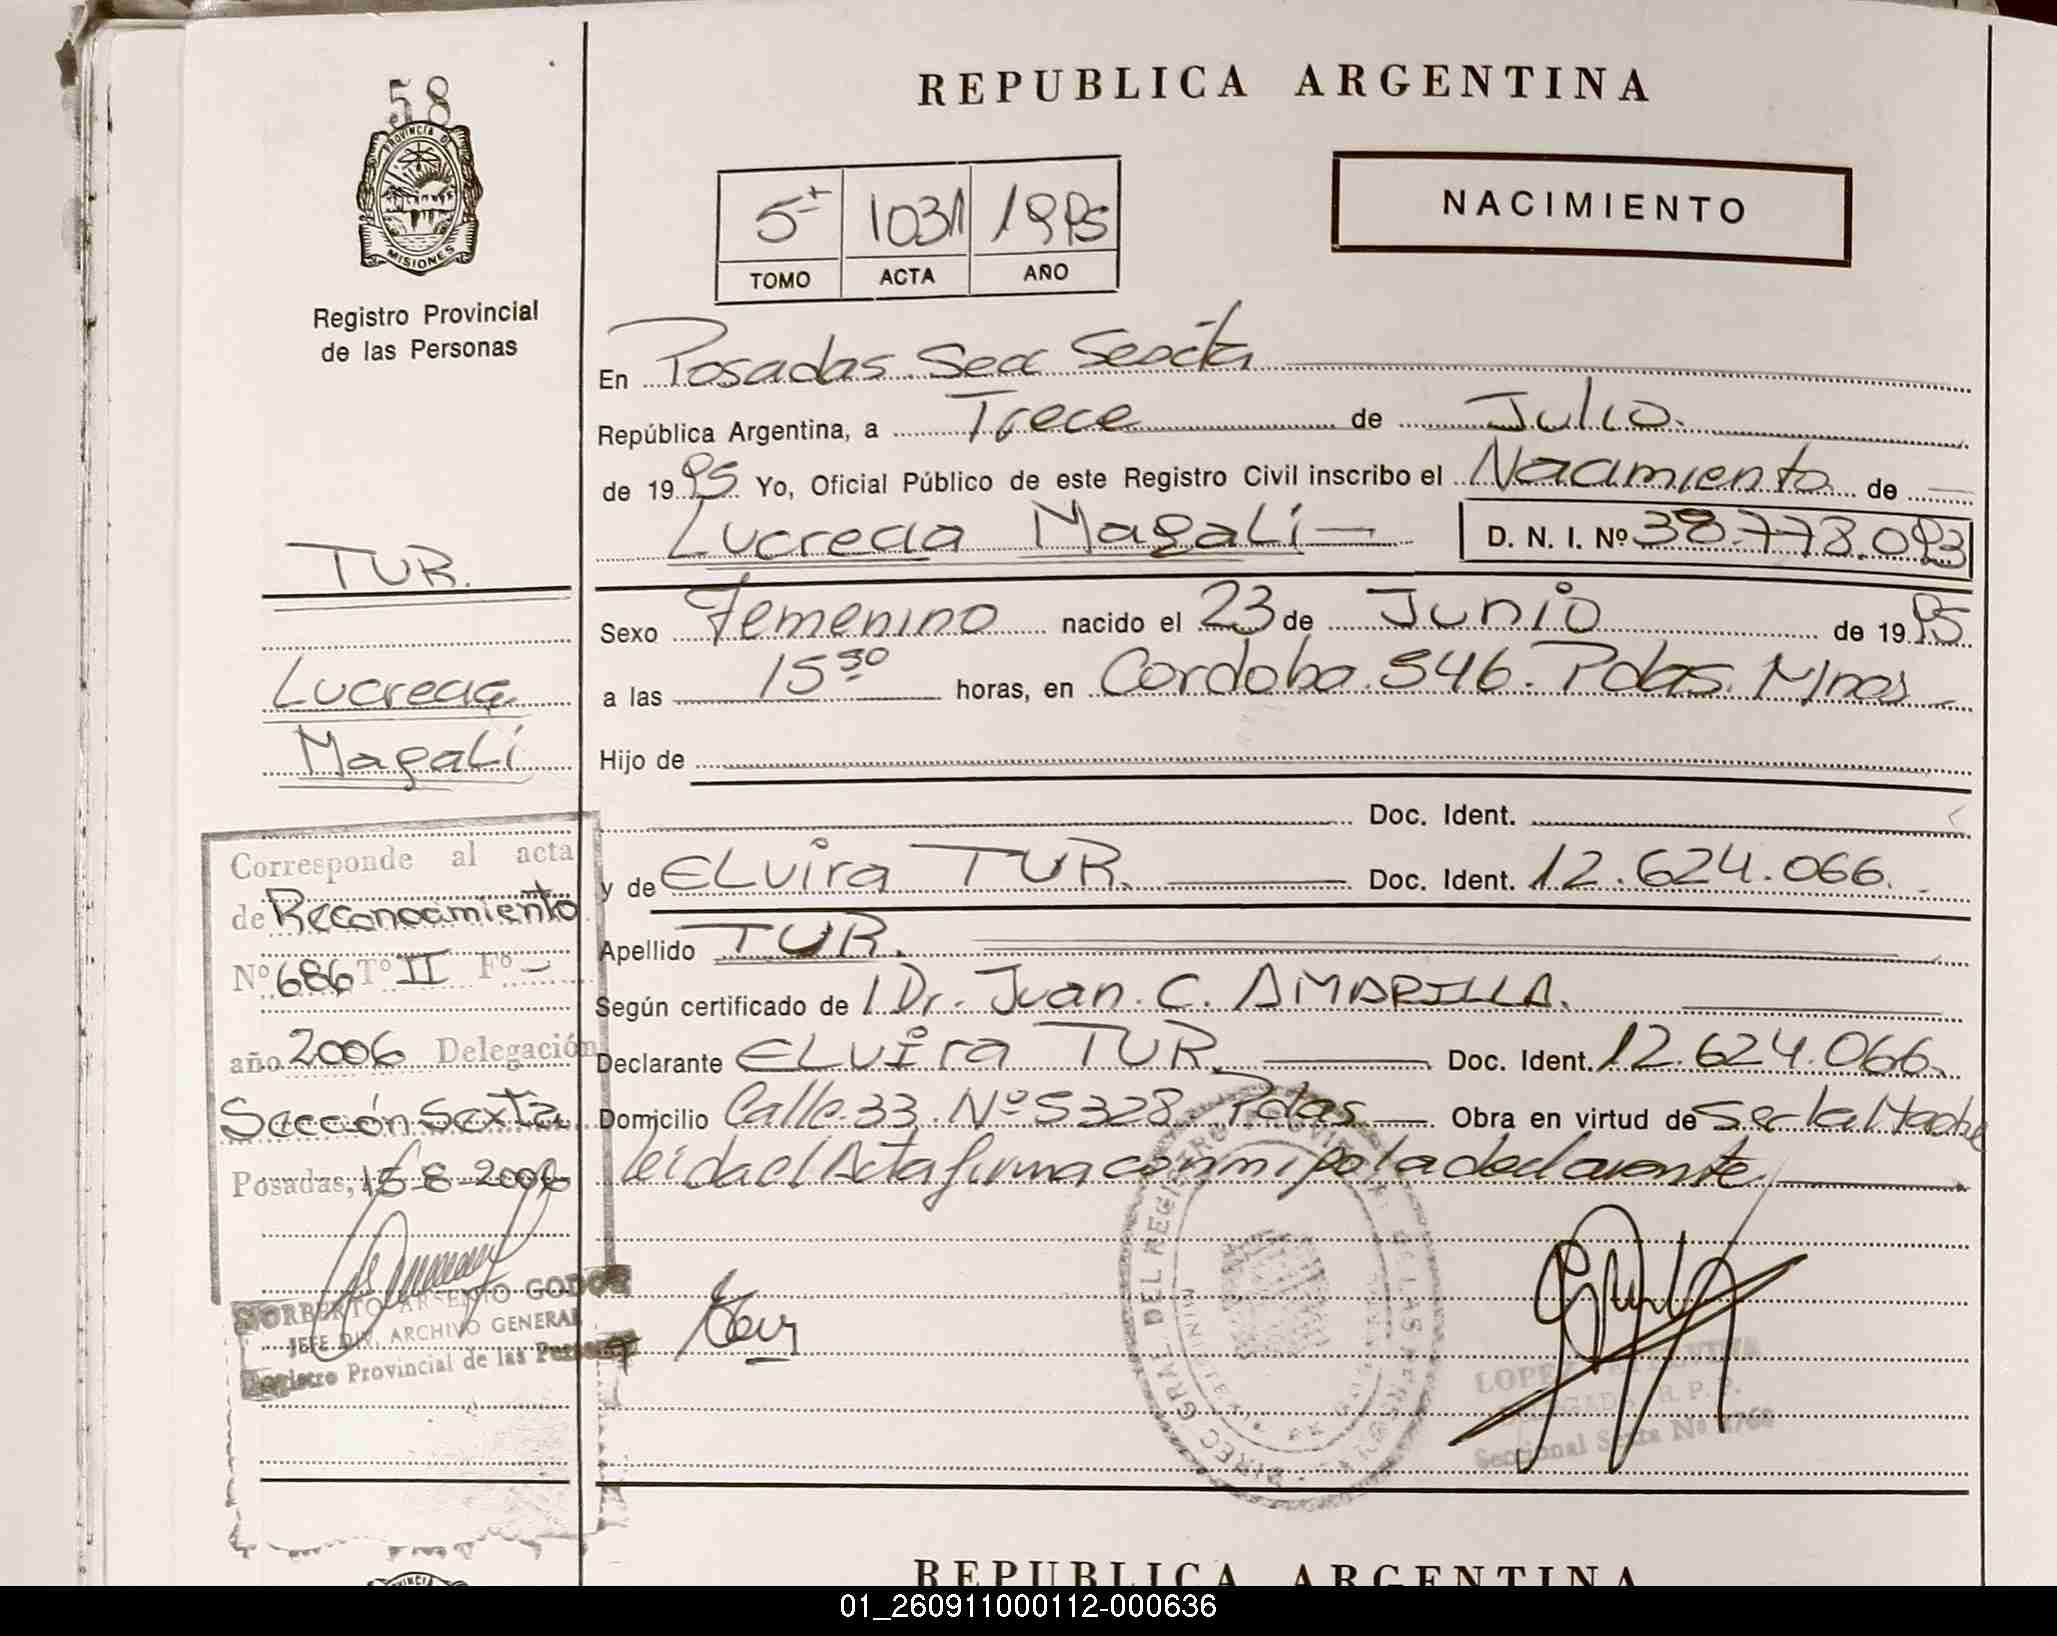 58
PROVINCIA DE
MISIONES
Registro Provincial
de las Personas
REPUBLICA ARGENTINA
NACIMIENTO
5ª 1031 1995
TOMO ACTA AÑO
En Posadas Secc Sexta
República Argentina, a Trece de Julio
de 1995 Yo, Oficial Público de este Registro Civil inscribo el Nacimiento de
Lucrecia Magali D. N. I. Nº 38.778.093
Sexo Femenino nacido el 23 de Junio de 1995
a las 15 30 horas, en Cordoba 546. Pdas. Mnes
Hijo de
Doc. Ident.
y de ELvira TUR. Doc. Ident. 12.624.066.
Apellido TUR.
Según certificado de Dr. Juan. C. AMARILLA.
Declarante ELvira TUR. Doc. Ident. 12.624.066.
Domicilio Calle 33. Nº 5328 Pdas Obra en virtud de Ser la Madre
leida el Acta firma conmi go la declarante
TUR.
Lucrecia
Magali
Corresponde al acta
de Reconocimiento
Nº 686 Tº II Fº -
año 2006 Delegación
Sección Sexta
Posadas, 15-8-2006
NORBERTO ARSENIO GODOY
JEFE DIV. ARCHIVO GENERAL
Registro Provincial de las Personas
DIREC GRAL DEL REGISTRO PROVINCIAL DE LAS PERSONAS
LOPEZ
R. P. P.
Seccional Sexta Nº 2768
REPUBLICA ARGENTINA
01_260911000112-000636